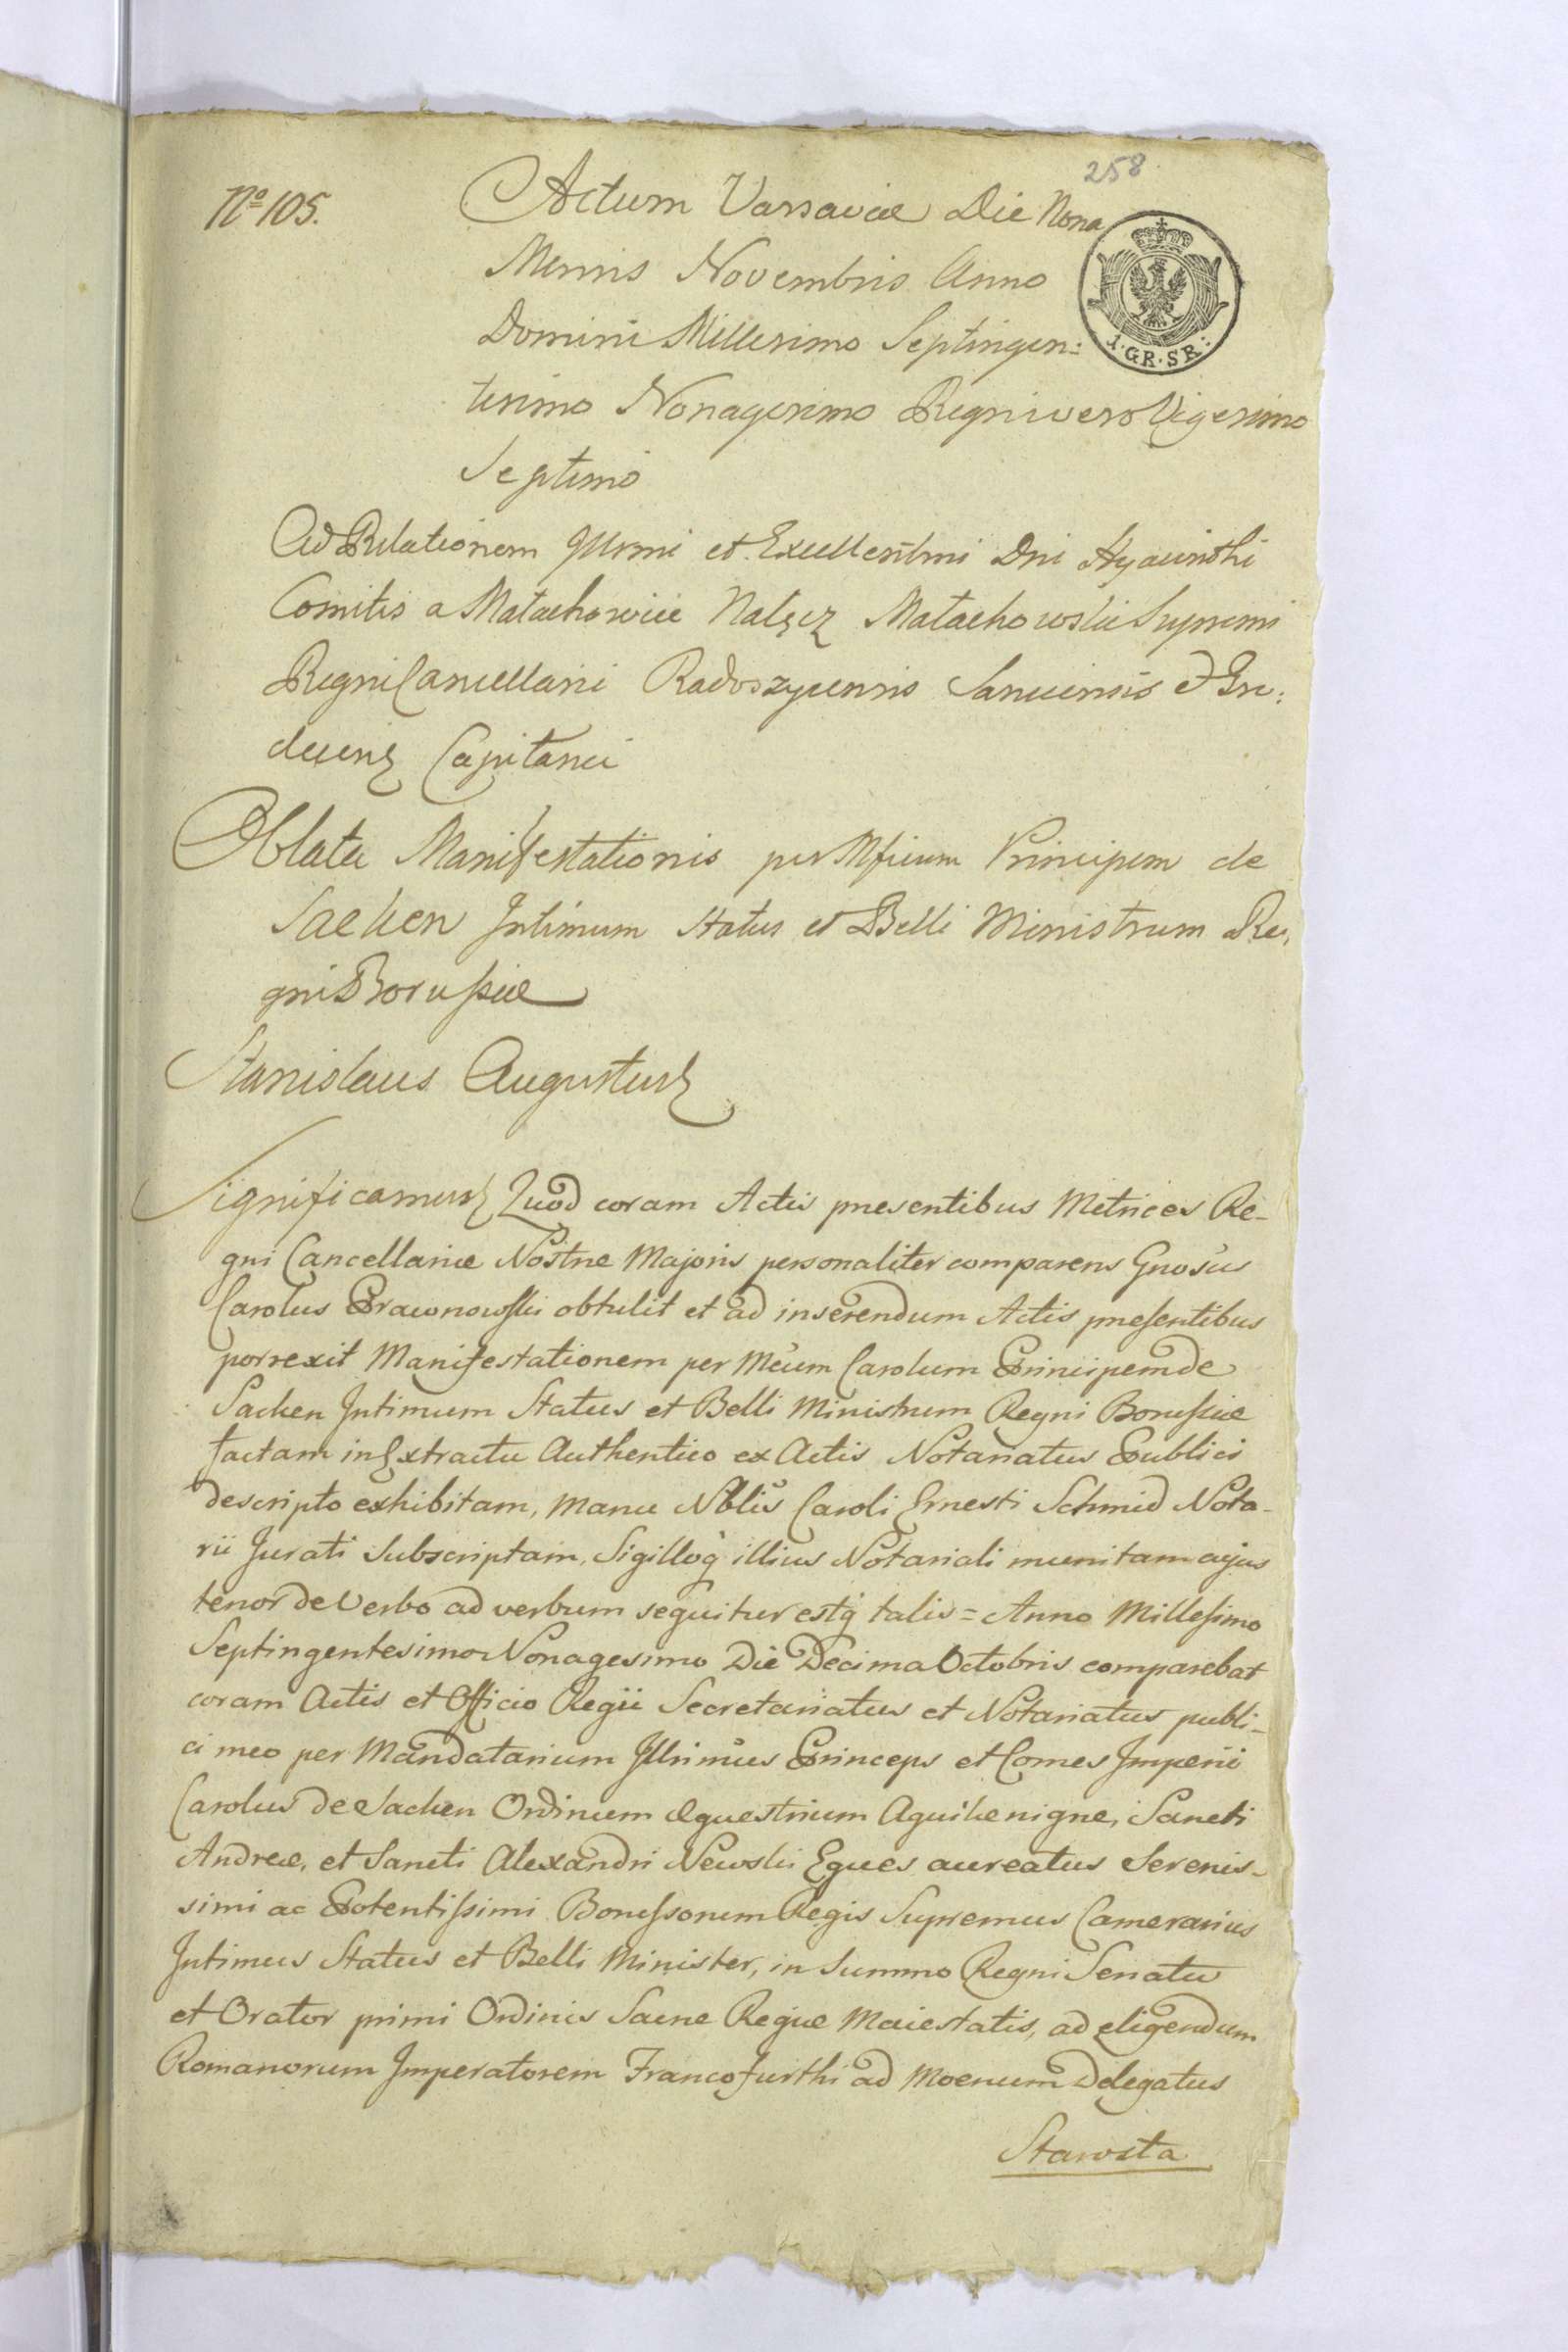 258.
Nº 105.
Actum Varsaviæ Die Nona
Mensis Novembris Anno
Domini Millesimo Septingen=
tesimo Nonagesimo Regni vero Vigesimo
Septimo
1·GR·SR:
Ad Relationem Illrmi et Excellentmi Dni Hyacinthi
Comitis a Małachowice Nałęcz Małachowski Supremi
Regni Cancellarii Radoszycensis Sanucensis et Gro:
decens Capitanei
Oblata Manifestationis per Mficum Principem de
Sacken Intimum Status et Belli Ministrum Re,
gni Borußiæ
Stanislaus Augustus
Significamus Quod coram Actis præsentibus Metrices Re-
gni Cancellariæ Nostræ Majoris personaliter comparens Gnosus
Carolus Prawnowski obtulit et ad inserendum Actis præsentibus
porrexit Manifestationem per Mcum Carolum Principem de
Sacken Intimum Status et Belli Ministrum Regni Borußiæ
factam in Extractu Authentico ex Actis Notariatus Publici
descripto exhibitam, Manu Nblis Caroli Ernesti Schmid Nota-
rii Jurati Subscriptam, Sigilloq illius Notariali munitam cujus
tenor de Verbo ad verbum sequitur estq talis = Anno Millesimo
Septingentesimo Nonagesimo Die Decima Octobris comparebat
coram Actis et Officio Regii Secretariatus et Notariatus publi-
ci meo per Mandatarium Illrimus Princeps et Comes Imperii
Carolus de Sacken Ordinum Equestrium Aquilæ nigræ, Sancti
Andreæ, et Sancti Alexandri Newski Eques aureatus Serenis-
simi ac Potentißimi Borußorum Regis Supremus Camerarius
Intimus Status et Belli Minister, in Summo Regni Senatu
et Orator primi Ordinis Sacræ Regiæ Maiestatis, ad eligendum
Romanorum Imperatorem Francofurthi ad Moenum Delegatus
Starosta